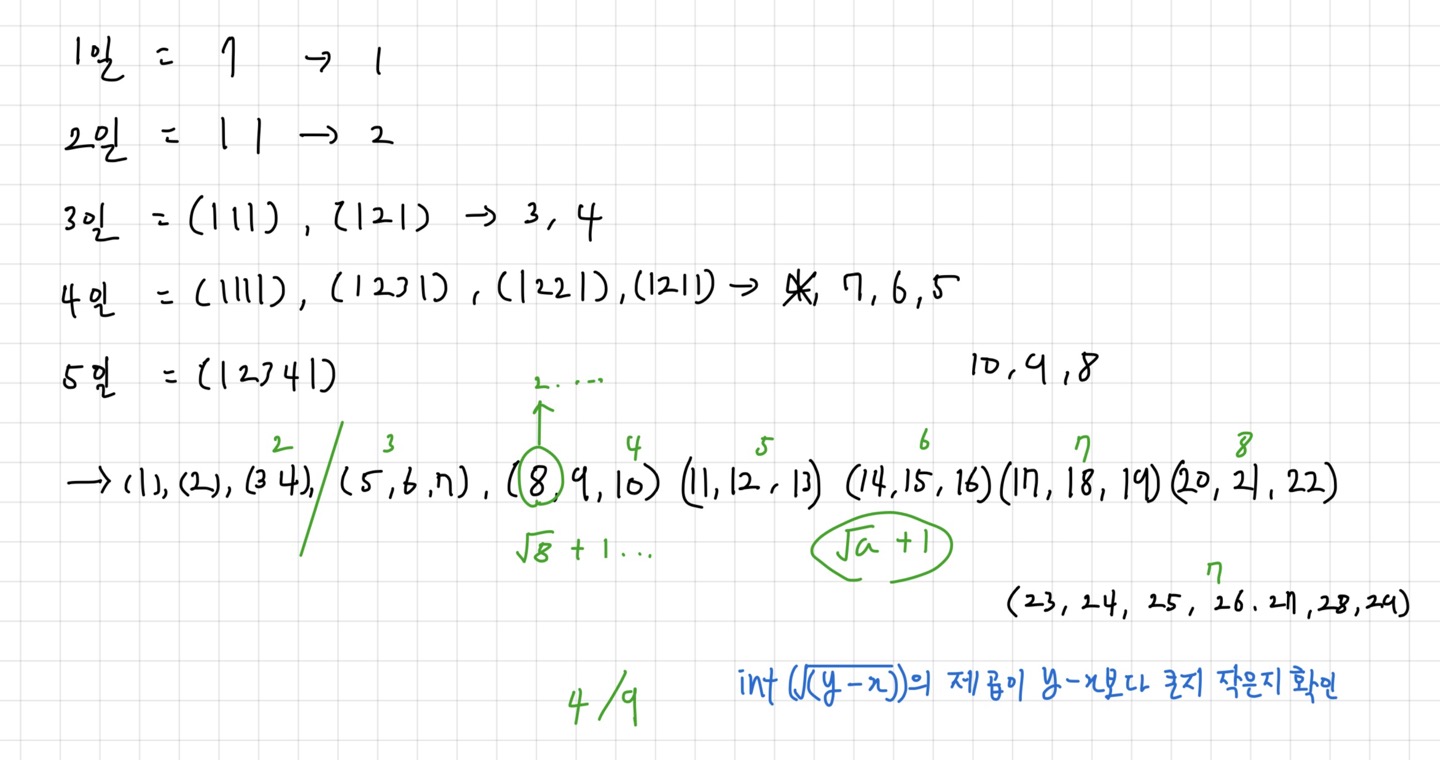 1일 = 1 → 1
2일 = 11 → 2
3일 = (111), (121) → 3, 4
4일 = (1111), (1231), (1221), (1211) → 7, 6, 5
5일 = (12341)
10, 9, 8
2. ...
2 3 4 5 6 7 8
→ (1), (2), (3 4), / (5, 6, 7), (8, 9, 10) (11, 12, 13) (14, 15, 16) (17, 18, 19) (20, 21, 22)
√8 + 1... √a + 1
7
(23, 24, 25, 26. 27, 28, 29)
int (√(y-x))의 제곱이 y-x보다 큰지 작은지 확인
4/9